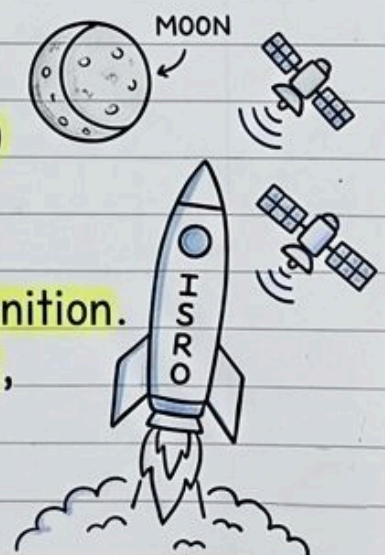 MOON
)
nition.
,
ISRO